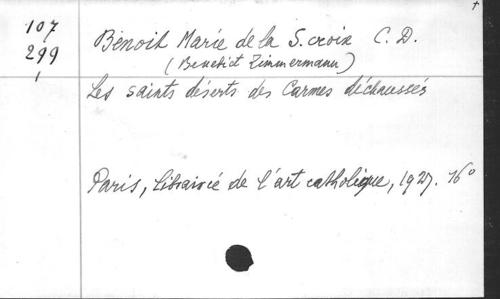 107
299
1
Benoit Marie de la S. croix C. D.
(Benedict Zimmermann)
Les saints déserts des Carmes déchaussés
Paris, Librairie de l'art catholique, 1927. 16°